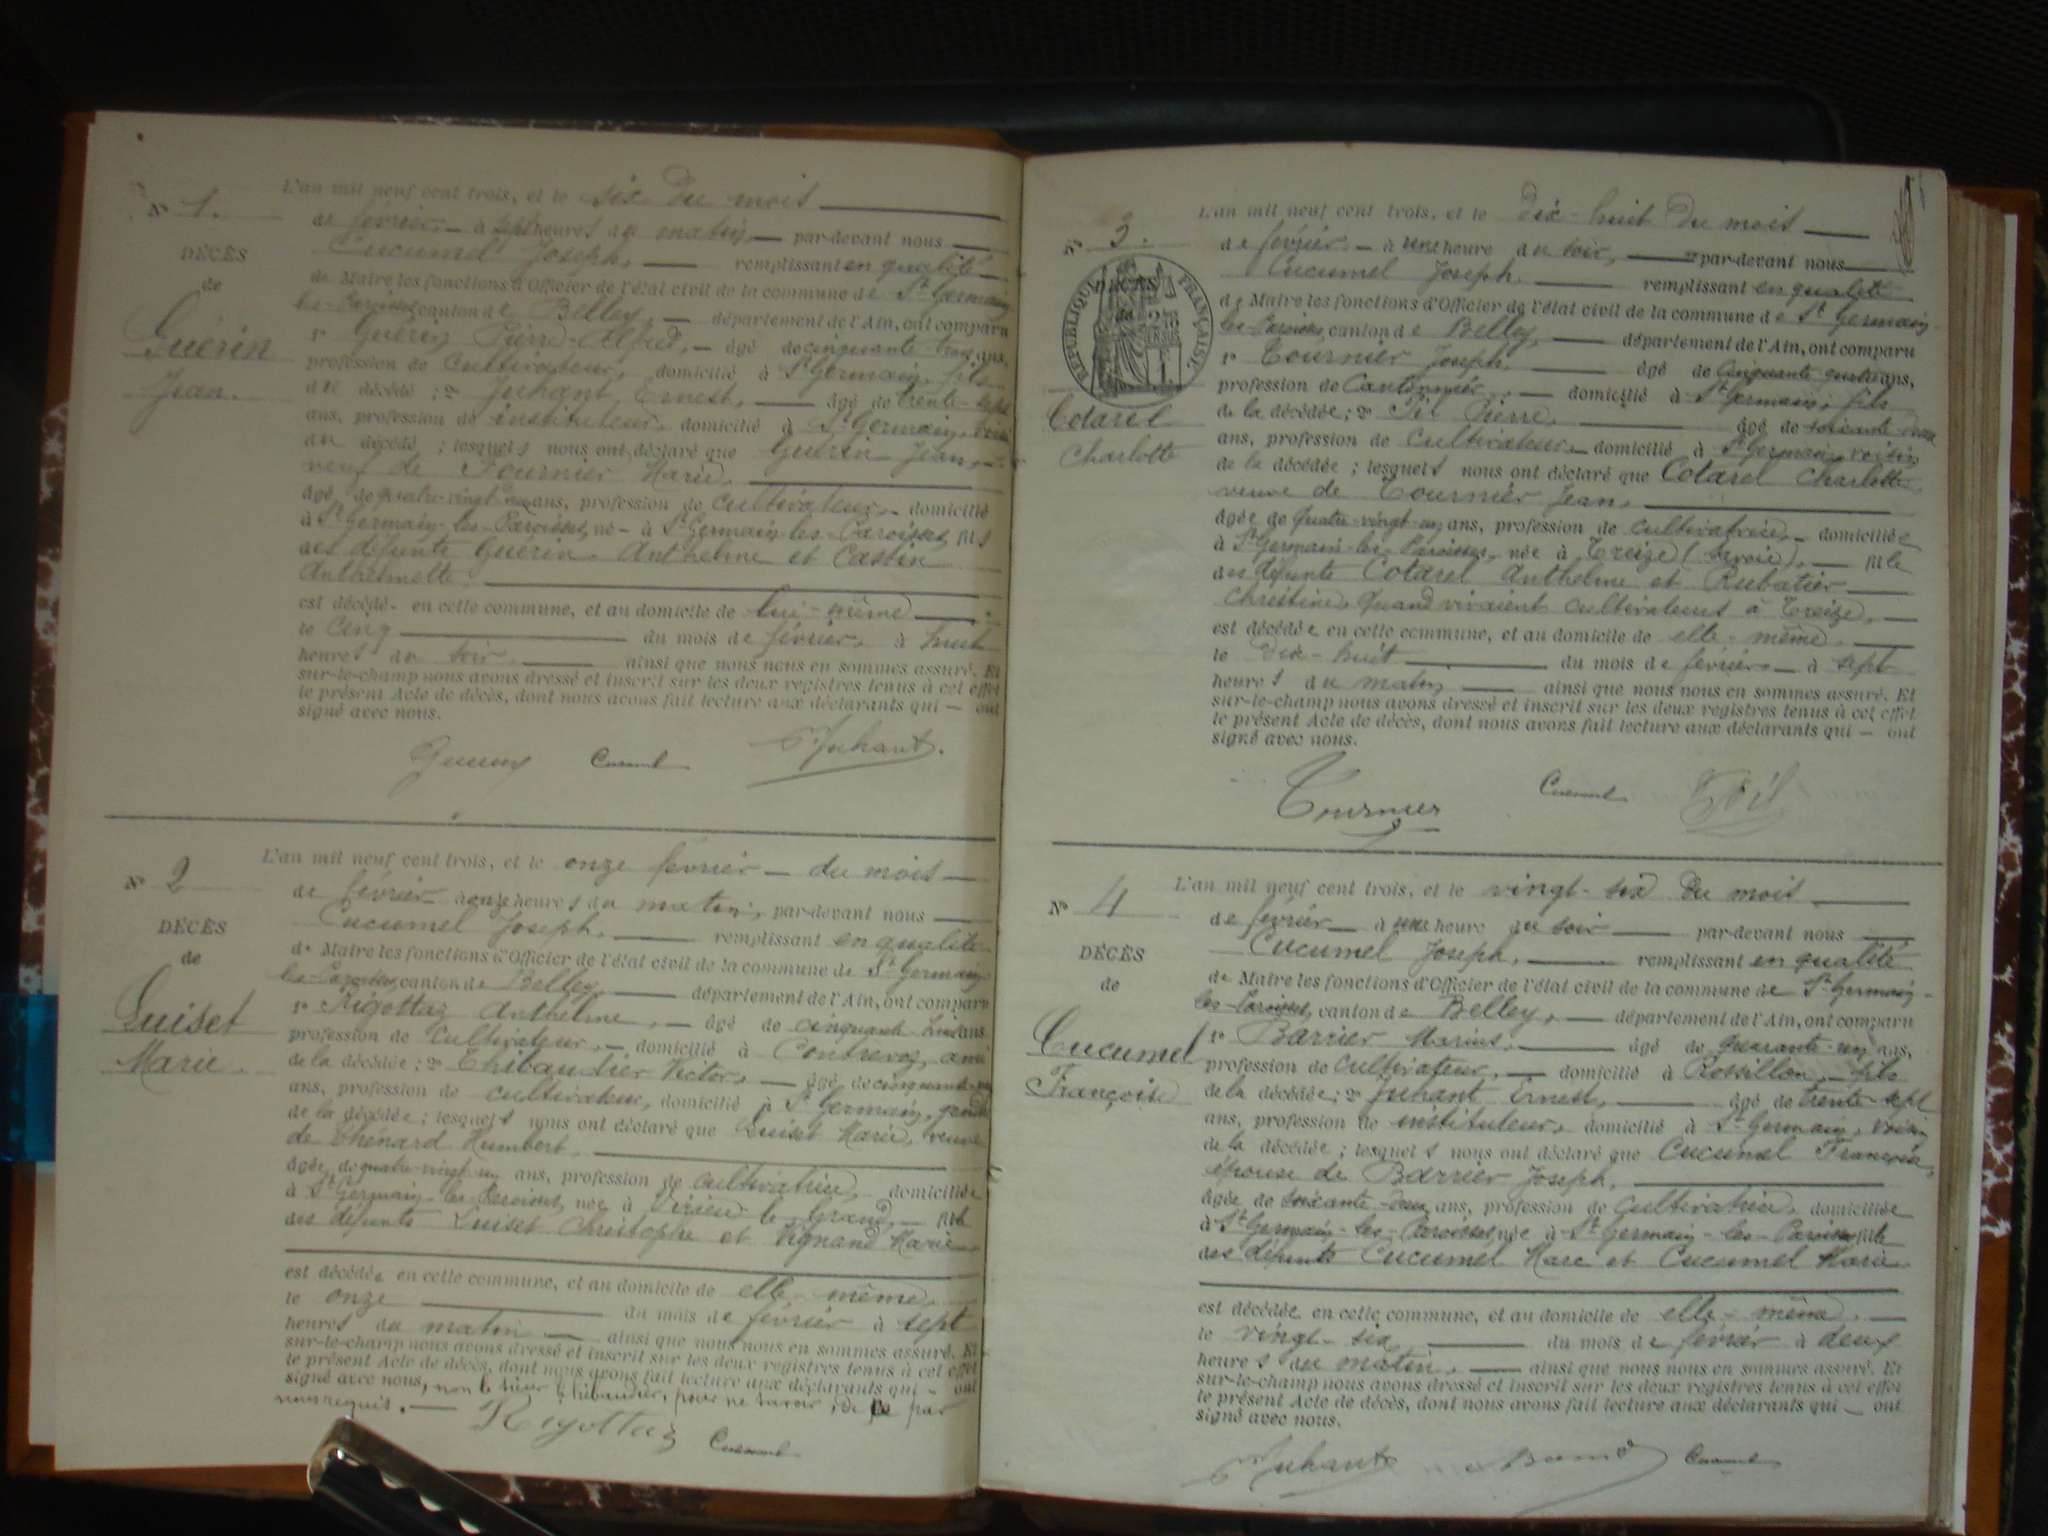 N° 1.
DÉCÈS
de
Guérin
Jean.
L'an mil neuf cent trois, et le six du mois
de février à sept heures du matin par-devant nous
Cucumel Joseph, remplissant en qualité
de Maire les fonctions d'Officier de l'état civil de la commune de St Germain
les-Paroisses canton de Belley, département de l'Ain, ont comparu
1° Guérin Pierre-Alfred, âgé de cinquante-trois ans,
profession de cultivateur, domicilié à St Germain, fils
du décédé ; 2° Juhant Ernest, âgé de trente-sept
ans, profession de instituteur, domicilié à St Germain, voisin
du décédé ; lesquels nous ont déclaré que Guérin Jean,
veuf de Fournier Marie,
âgé de quatre-vingt ans, profession de cultivateur, domicilié
à St Germain-les-Paroisses, né à St Germain-les-Paroisses, fils
des défunts Guérin Anthelme et Castin
Anthelmette
est décédé en cette commune, et au domicile de lui-même
le cinq du mois de février, à huit
heures du soir, ainsi que nous nous en sommes assuré. Et
sur-le-champ nous avons dressé et inscrit sur les deux registres tenus à cet effet
le présent Acte de décès, dont nous avons fait lecture aux déclarants qui — ont
signé avec nous.
Guérin Cucumel E. Juhant.
N° 2
DÉCÈS
de
Luiset
Marie.
L'an mil neuf cent trois, et le onze février du mois
de février à onze heures du matin, par-devant nous
Cucumel Joseph, remplissant en qualité
de Maire les fonctions d'Officier de l'état civil de la commune de St Germain
les-Paroisses canton de Belley, département de l'Ain, ont comparu
1° Rigottaz Anthelme, âgé de cinquante ans
profession de cultivateur, domicilié à Contrevoz, ami
de la décédée ; 2° Thibaudier Victor, âgé de cinquante
ans, profession de cultivateur, domicilié à St Germain, gendre
de la décédée ; lesquels nous ont déclaré que Luiset Marie, veuve
de Chénard Humbert,
âgée de quatre-vingt-un ans, profession de cultivatrice, domiciliée
à St Germain-les-Paroisses, née à Virieu-le-Grand, fille
des défunts Luiset Christophe et Vignand Marie
est décédée en cette commune, et au domicile de elle-même,
le onze du mois de février à sept
heures du matin ainsi que nous nous en sommes assuré. Et
sur-le-champ nous avons dressé et inscrit sur les deux registres tenus à cet effet
le présent Acte de décès, dont nous avons fait lecture aux déclarants qui — ont
signé avec nous, non le sieur Thibaudier, pour ne savoir, de ce par
nous requis.
Rigottaz Cucumel
N° 3.
DÉCÈS
de
RÉPUBLIQUE FRANÇAISE
Cotarel
Charlotte
L'an mil neuf cent trois, et le dix-huit du mois
de février à une heure du soir, par-devant nous
Cucumel Joseph, remplissant en qualité
de Maire les fonctions d'Officier de l'état civil de la commune de St Germain-
les-Paroisses, canton de Belley, département de l'Ain, ont comparu
1° Tournier Joseph, âgé de cinquante quatre ans,
profession de Cantonnier, domicilié à St Germain, fils
de la décédée ; 2° Pierre, âgé de soixante-deux
ans, profession de cultivateur, domicilié à St Germain, voisin
de la décédée ; lesquels nous ont déclaré que Cotarel Charlotte
veuve de Tournier Jean,
âgée de quatre-vingt-un ans, profession de cultivatrice, domiciliée
à St Germain-les-Paroisses, née à Treize (Savoie), fille
des défunts Cotarel Anthelme et Rubatier
Christine, quand vivaient cultivateurs à Treize,
est décédée en cette commune, et au domicile de elle-même,
le dix-huit du mois de février à sept
heures du matin ainsi que nous nous en sommes assuré. Et
sur-le-champ nous avons dressé et inscrit sur les deux registres tenus à cet effet
le présent Acte de décès, dont nous avons fait lecture aux déclarants qui — ont
signé avec nous.
Tournier Cucumel
N° 4
DÉCÈS
de
Cucumel
Françoise
L'an mil neuf cent trois, et le vingt-six du mois
de février à une heure du soir par-devant nous
Cucumel Joseph, remplissant en qualité
de Maire les fonctions d'Officier de l'état civil de la commune de St Germain-
les-Paroisses, canton de Belley, département de l'Ain, ont comparu
1° Barrier Marius, âgé de quarante-un ans,
profession de cultivateur, domicilié à Rossillon, fils
de la décédée ; 2° Juhant Ernest, âgé de trente-sept
ans, profession de instituteur, domicilié à St Germain, voisin
de la décédée ; lesquels nous ont déclaré que Cucumel Françoise,
épouse de Barrier Joseph,
âgée de soixante-deux ans, profession de cultivatrice, domiciliée
à St Germain-les-Paroisses, née à St Germain-les-Paroisses fille
des défunts Cucumel Marc et Cucumel Marie
est décédée en cette commune, et au domicile de elle-même,
le vingt-six du mois de février à deux
heures du matin, ainsi que nous nous en sommes assuré. Et
sur-le-champ nous avons dressé et inscrit sur les deux registres tenus à cet effet
le présent Acte de décès, dont nous avons fait lecture aux déclarants qui — ont
signé avec nous.
E. Juhant Cucumel